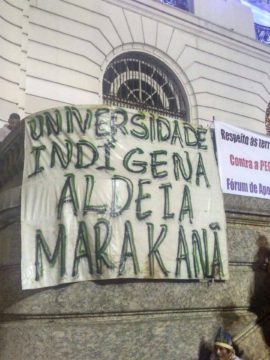 UNIVERSIDADE
INDÍGENA
ALDEIA
MARAKANÃ
Respeito às
Contra a
Fórum de